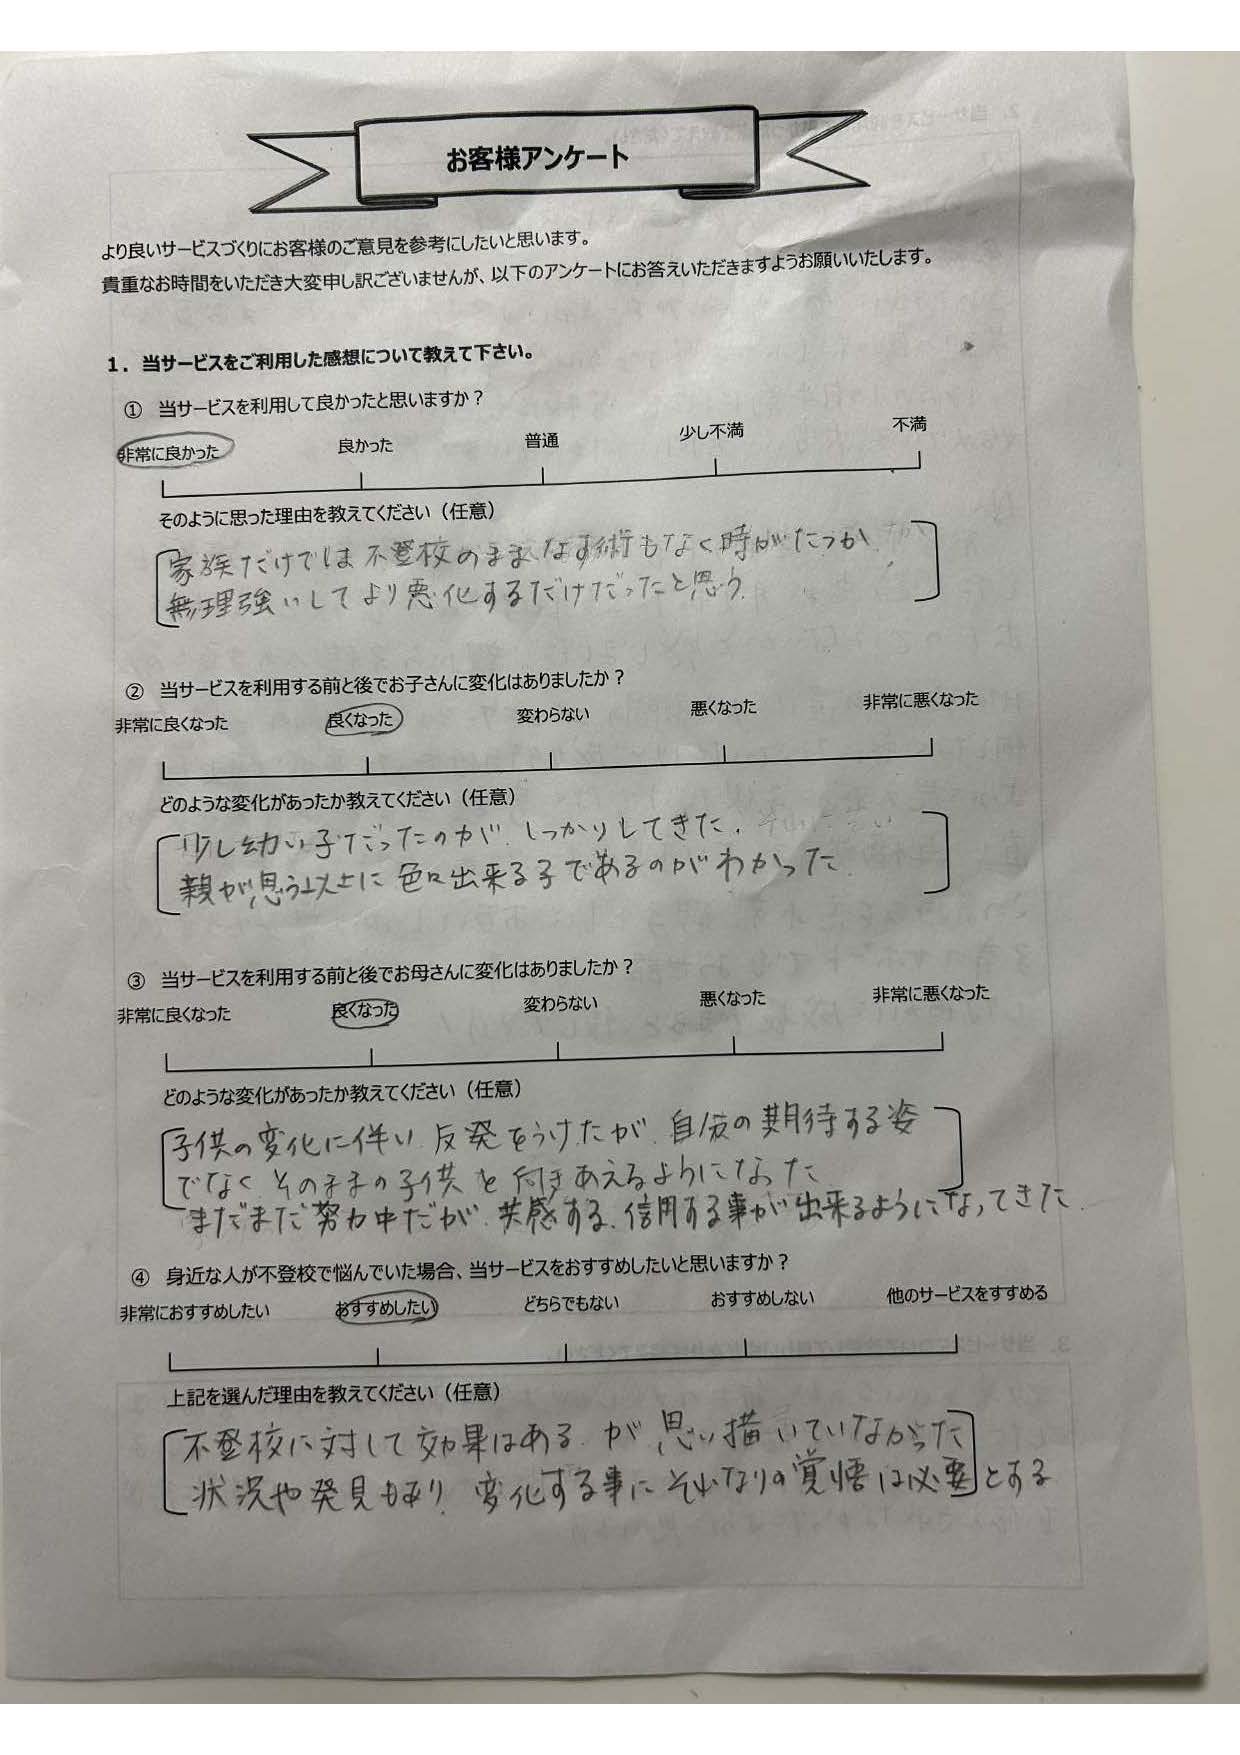 お客様アンケート
より良いサービスづくりにお客様のご意見を参考にしたいと思います。
貴重なお時間をいただき大変申し訳ございませんが、以下のアンケートにお答えいただきますようお願いいたします。
1．当サービスをご利用した感想について教えて下さい。
① 当サービスを利用して良かったと思いますか？
非常に良かった 良かった 普通 少し不満 不満
そのように思った理由を教えてください（任意）
家族だけでは不登校のままなす術もなく時がたつか
無理強いしてより悪化するだけだったと思う.
② 当サービスを利用する前と後でお子さんに変化はありましたか？
非常に良くなった 良くなった 変わらない 悪くなった 非常に悪くなった
どのような変化があったか教えてください（任意）
少し幼い子だったのが、しっかりしてきた.
親が思う以上に色々出来る子であるのがわかった.
③ 当サービスを利用する前と後でお母さんに変化はありましたか？
非常に良くなった 良くなった 変わらない 悪くなった 非常に悪くなった
どのような変化があったか教えてください（任意）
子供の変化に伴い、反発をうけたが、自分の期待する姿
でなく、そのままの子供を向きあえるようになった
まだまだ努力中だが、共感する、信用する事が出来るようになってきた.
④ 身近な人が不登校で悩んでいた場合、当サービスをおすすめしたいと思いますか？
非常におすすめしたい おすすめしたい どちらでもない おすすめしない 他のサービスをすすめる
上記を選んだ理由を教えてください（任意）
不登校に対して効果はある. が 思い描いていなかった
状況や発見もあり、変化する事にそれなりの覚悟は必要とする